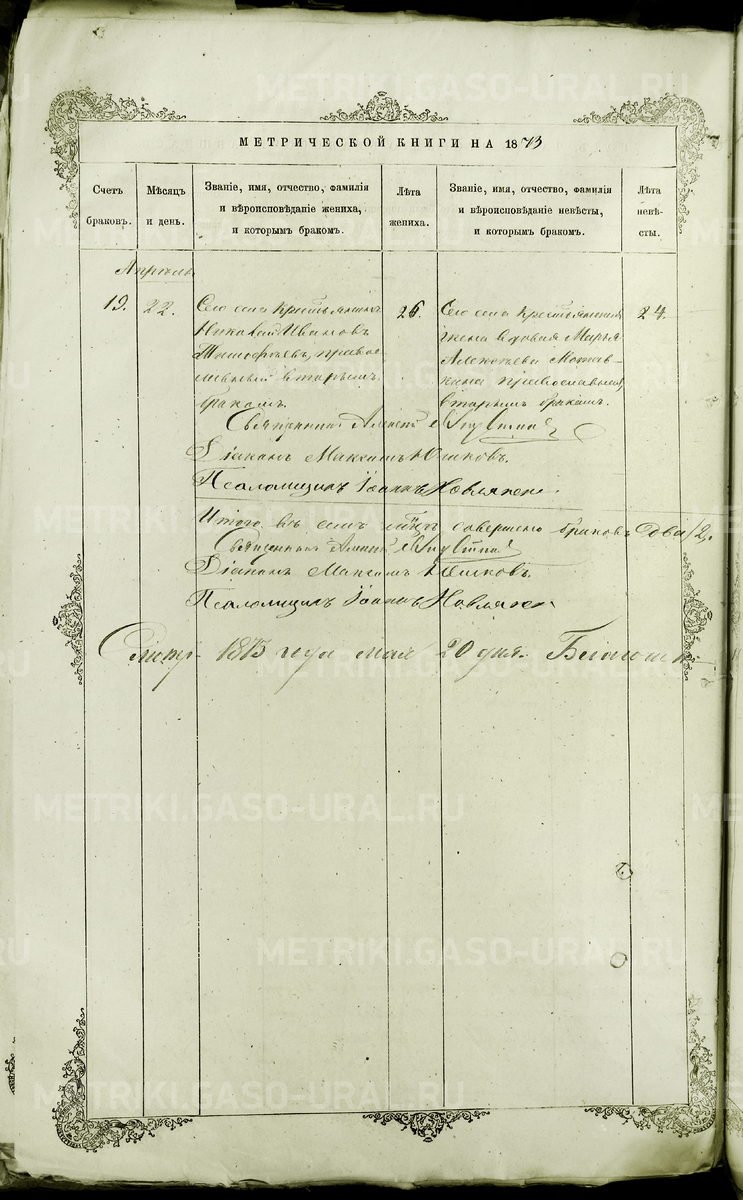 МЕТРИЧЕСКОЙ КНИГИ НА 1873
Счетъ браковъ.
Мѣсяцъ и день.
Званіе, имя, отчество, фамилія и вѣроисповѣданіе жениха, и которымъ бракомъ.
Лѣта жениха.
Званіе, имя, отчество, фамилія и вѣроисповѣданіе невѣсты, и которымъ бракомъ.
Лѣта невѣсты.
Апрѣль
19.
22.
Сего села крестьянинъ
Николай Ивановъ
православный вторымъ
бракомъ.
26.
Сего села крестьянская
жена вдовая Марья
Алексѣева
православная,
вторымъ бракомъ.
24.
Священникъ Алексій
Діаконъ Максимъ Юшковъ.
Псаломщикъ Іоаннъ
Итого въ семъ совершено браковъ два /2/.
Священникъ Алексій
Діаконъ Максимъ Юшковъ.
Псаломщикъ Іоаннъ
1873 года мая 20 дня.
METRIKI.GASO-URAL.RU